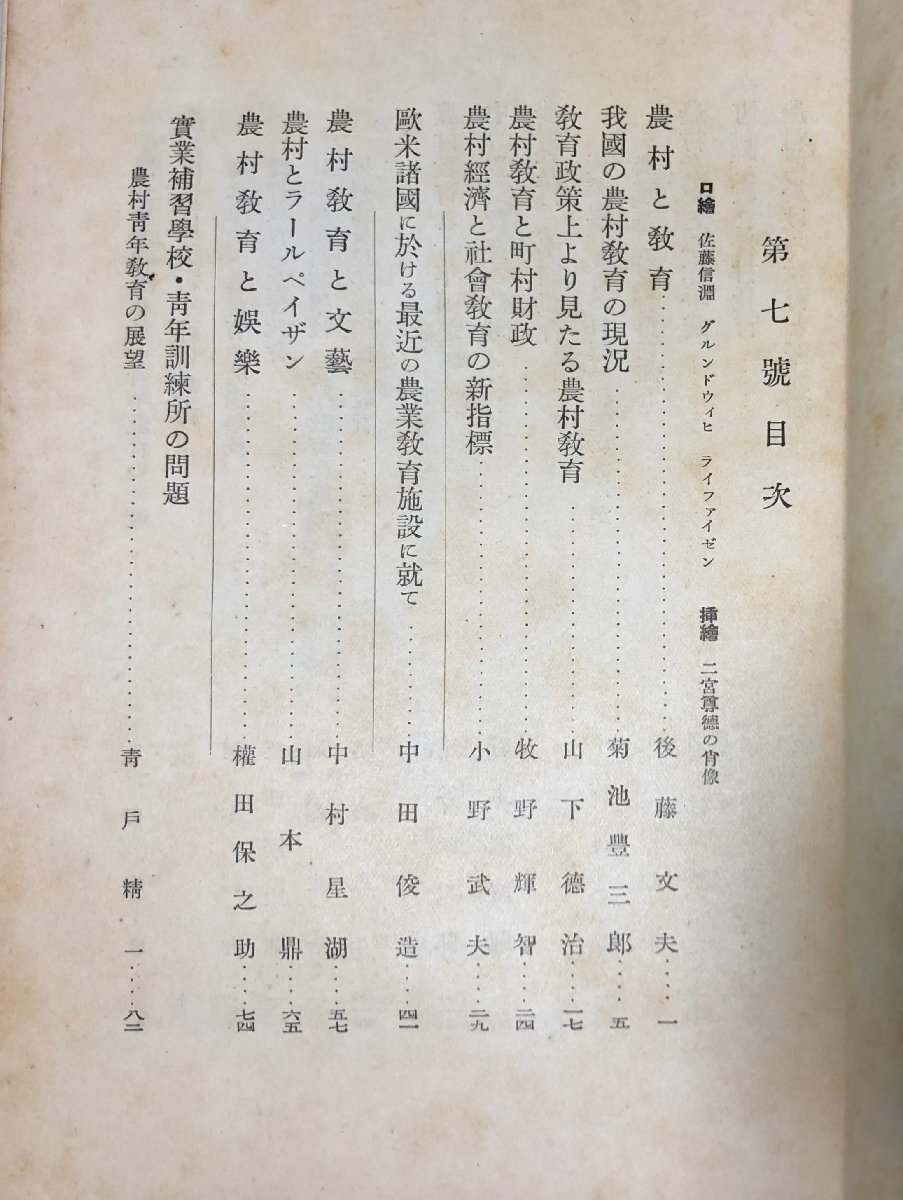 第七號目次
口繪 佐藤信淵 グルンドウィヒ ライファイゼン 挿繪 二宮尊德の肖像
農村と教育……後藤文夫……一
我國の農村教育の現況……菊池豐三郎……五
教育政策上より見たる農村教育……山下德治……一七
農村教育と町村財政……牧野輝智……二四
農村經濟と社會教育の新指標……小野武夫……二九
歐米諸國に於ける最近の農業教育施設に就て……中田俊造……四一
農村教育と文藝……中村星湖……五七
農村とラールペイザン……山本鼎……六五
農村教育と娯樂……權田保之助……七四
實業補習學校・靑年訓練所の問題
農村靑年教育の展望……靑戶精一……八二